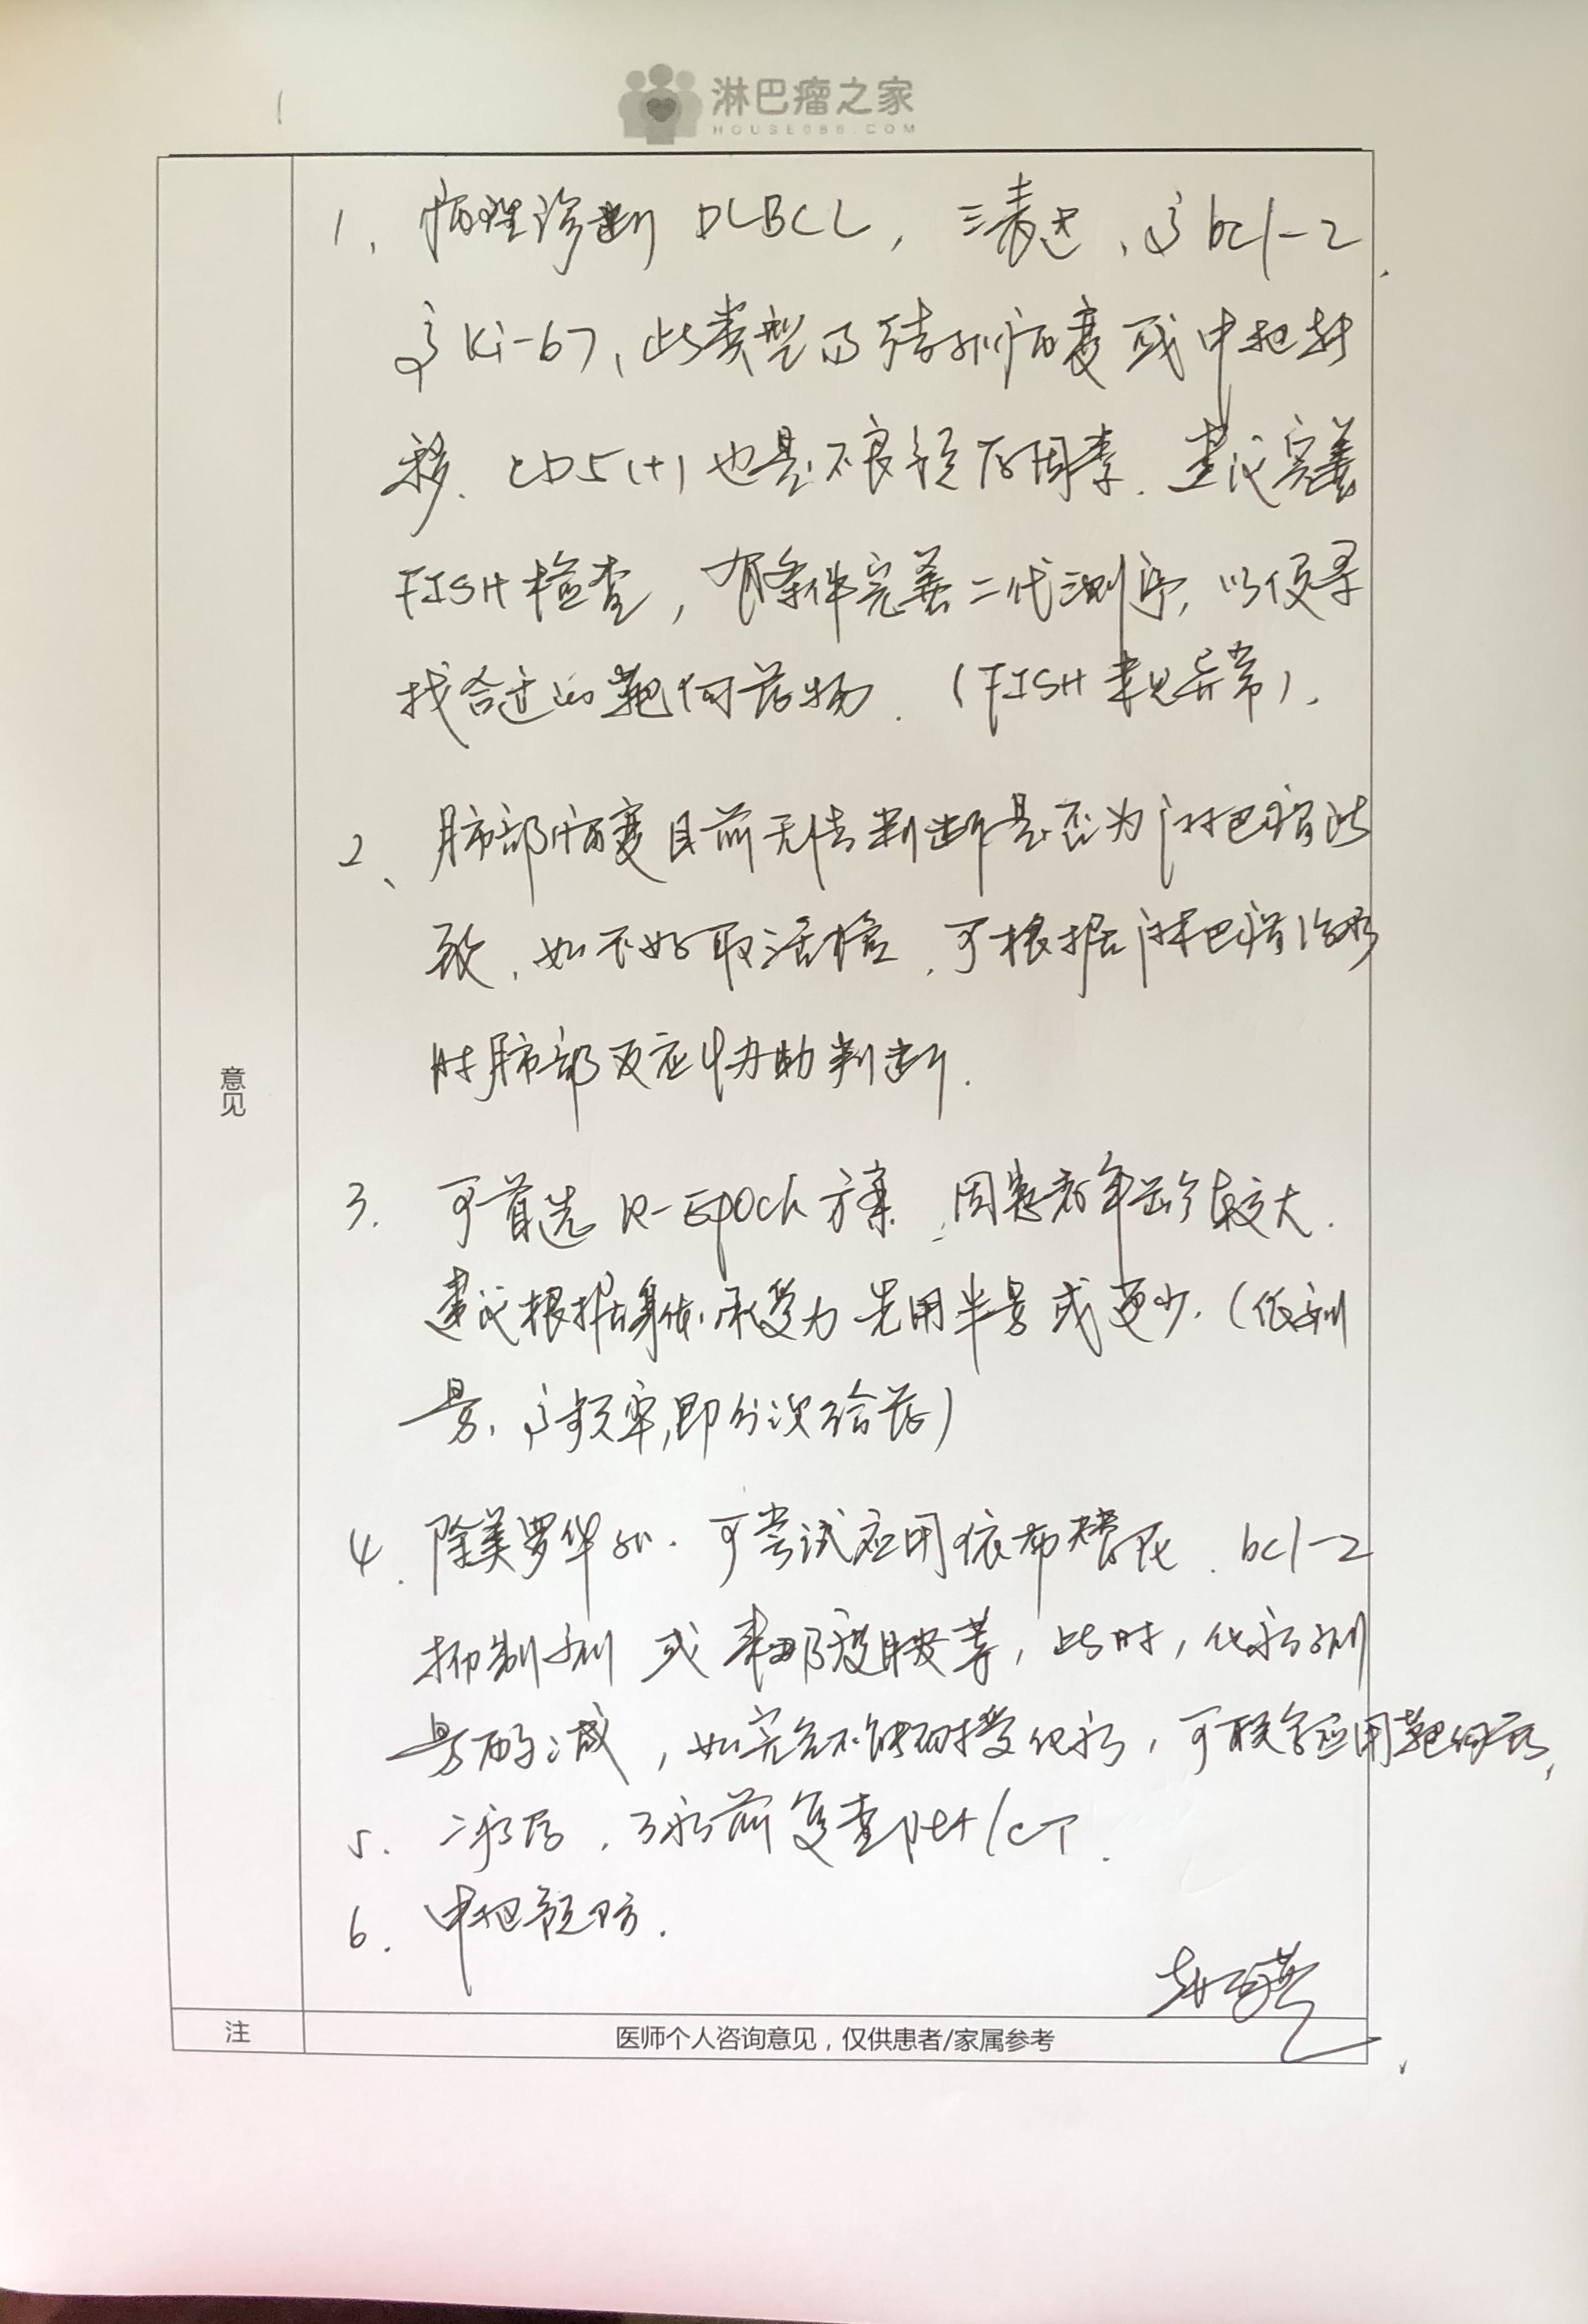 淋巴瘤之家
HOUSE086.COM
1、病理诊断 DLBCL，三表达、高 bcl-2
高 Ki-67，此类型易结外病变或中枢转
移、CD5(+)也是不良预后因素．建议完善
FISH 检查，有条件完善二代测序，以便寻
找合适的靶向药物．（FISH 未见异常）．
2、肺部病变目前无法判断是否为淋巴瘤所
致，如不好取活检，可根据淋巴瘤治疗
时肺部反应协助判断．
意见
3．可首选 R-EPOCh 方案，因患者年龄较大．
建议根据身体承受力先用半量或更少．（低剂
量、高频率，即分次给药）
4．除美罗华外．可尝试应用依布替尼、bcl-2
抑制剂 或来那度胺等，此时，化疗剂
量酌减，如完全不能耐受化疗，可联合应用靶向药，
5．二疗后，3疗前复查 pet/CT．
6．中枢预防．
注
医师个人咨询意见，仅供患者/家属参考